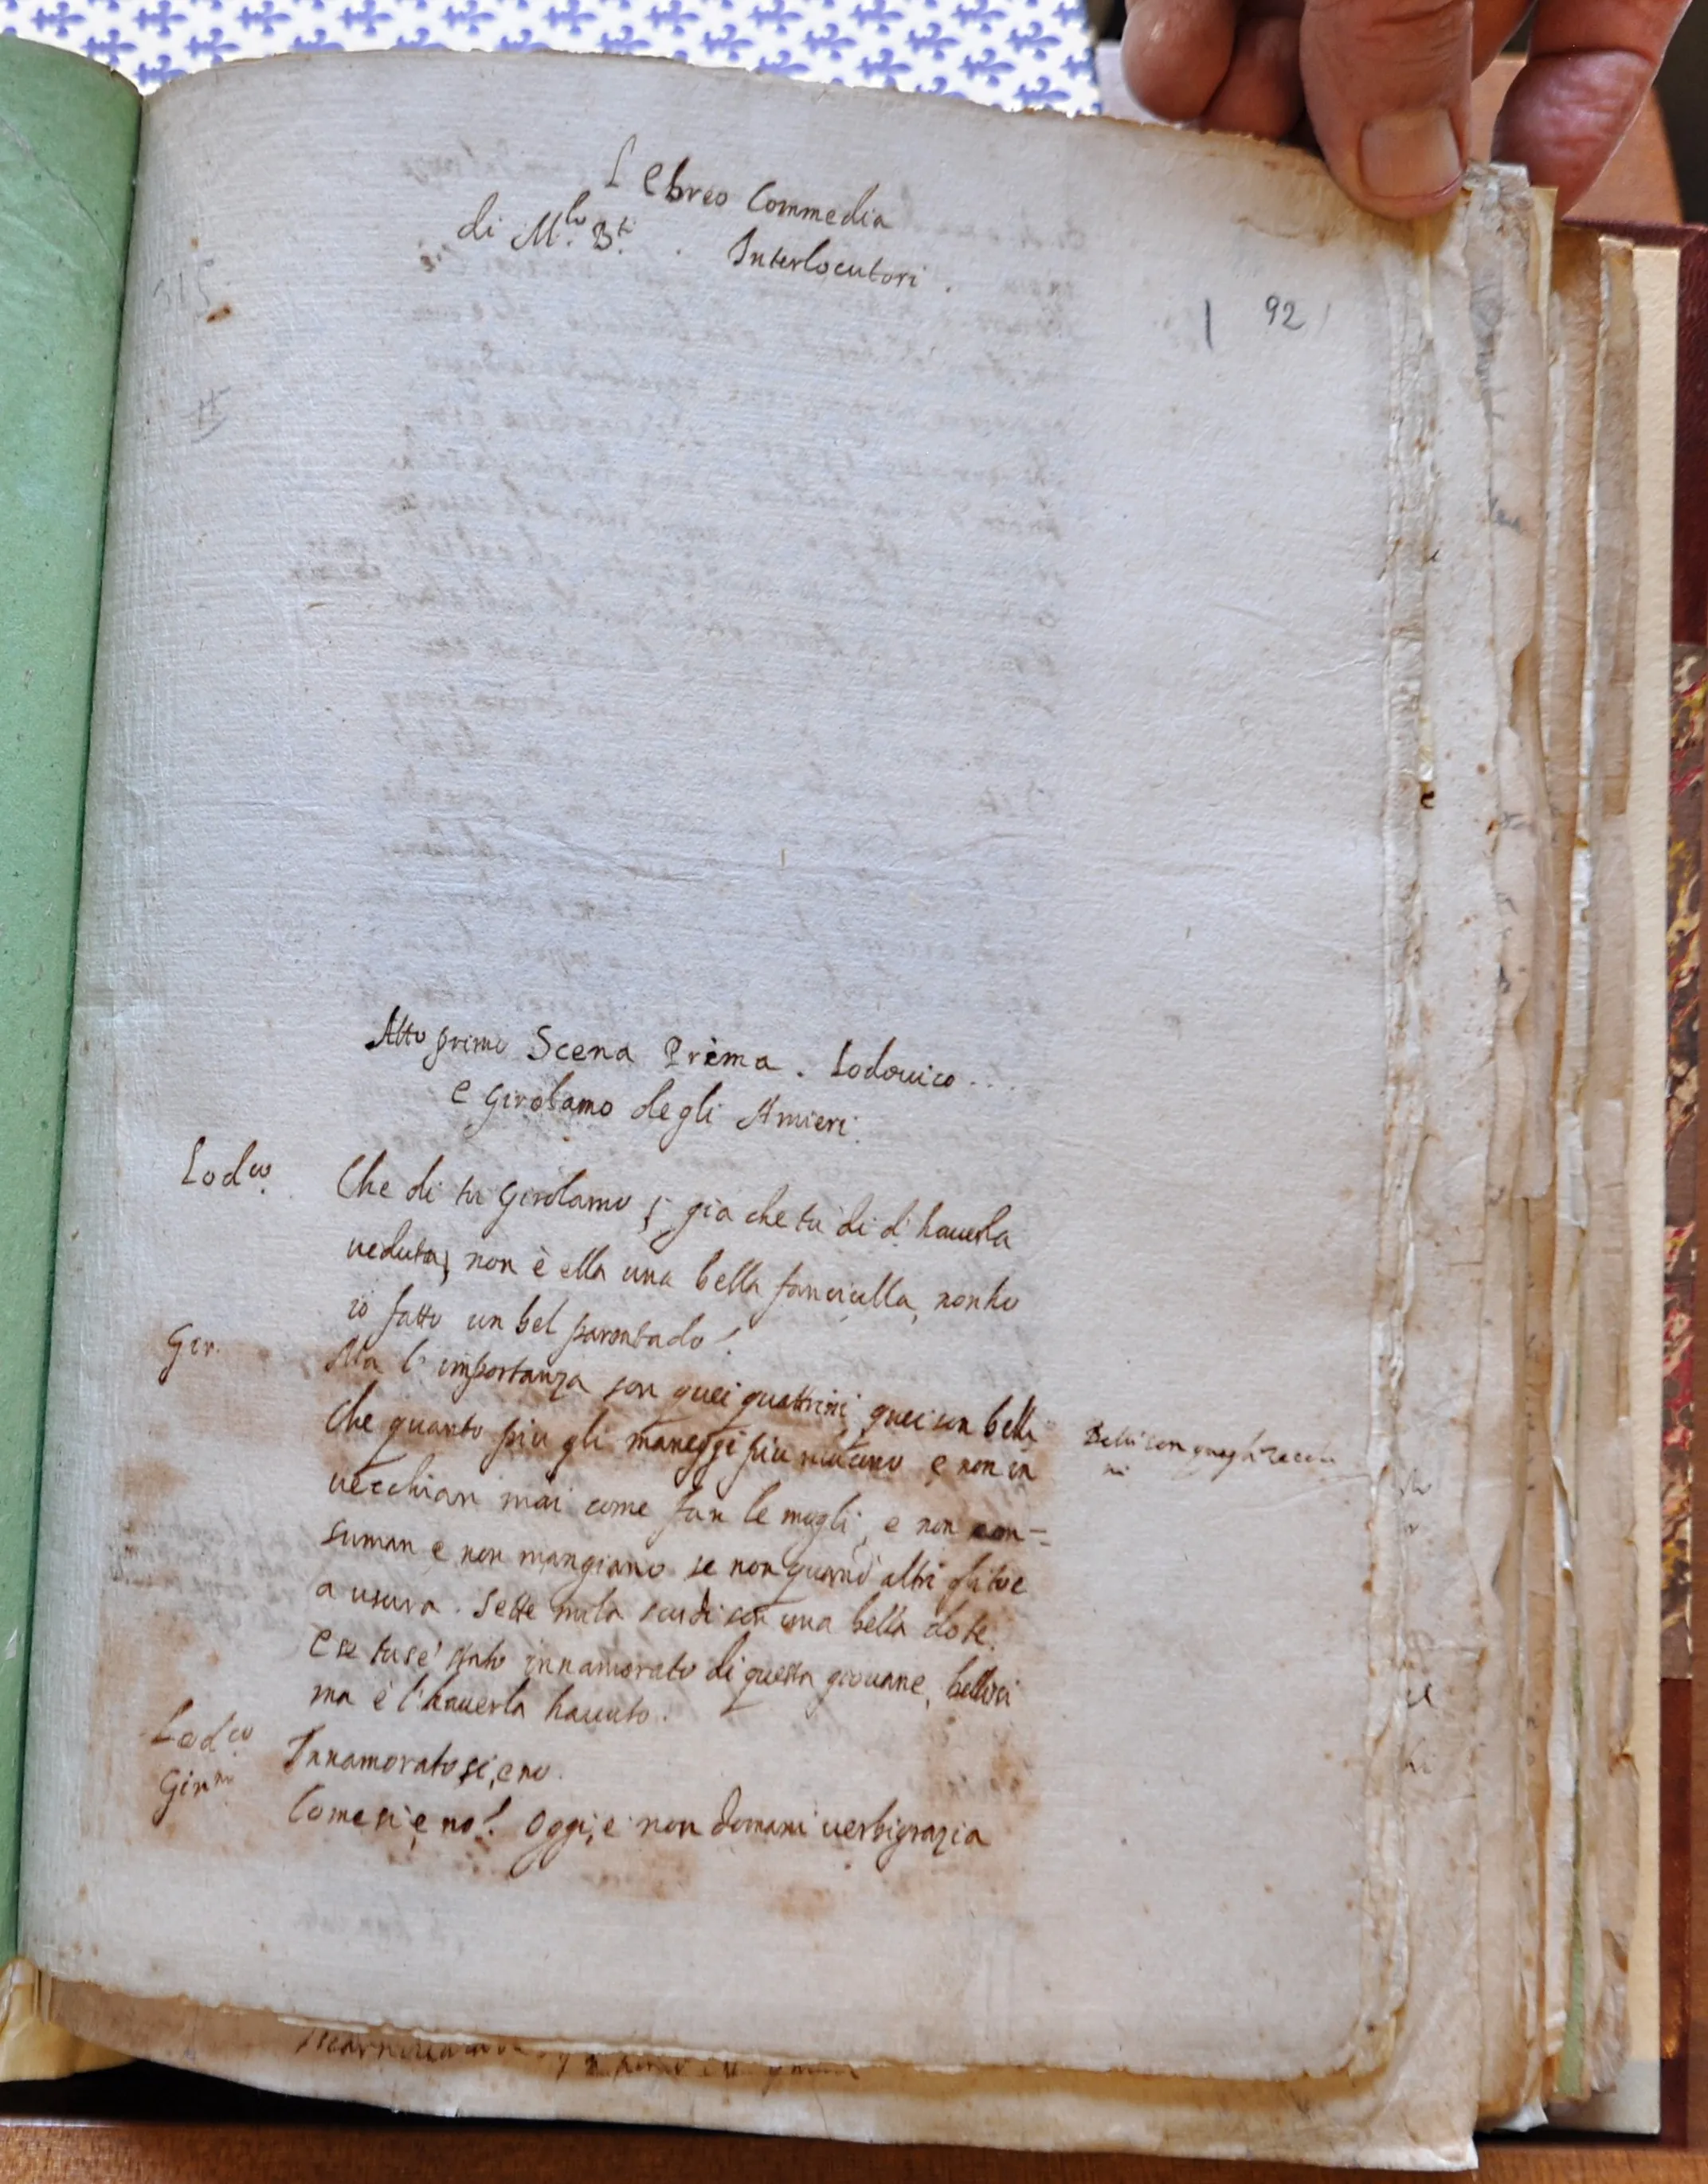 L'Ebreo Commedia
di M.lo B.ti
Interlocutori.
92
Atto primo Scena Prima. Lodouico...
e Girolamo degli Amieri.
Lod.co Che di tu Girolamo, già che tu di d'hauerla
ueduta, non è ella una bella fanciulla, non ho
io fatto un bel parentado!
Gir. Ma l'importanza son quei quattrini, quei son belli
Che quanto più gli maneggi più e non in
Belli son quegli zecchi
ni
uecchian mai come fan le mogli, e non con=
suman e non mangiano se non quand'altri gli toe
a usura. Sette mila scudi son una bella dote.
E se tu se' stato innamorato di questa giouane, bellissi
ma è l'hauerla hauuto.
Lod.co Innamorato si, e no.
Gir.mo Come si e no! Oggi, e non domani uerbigrazia